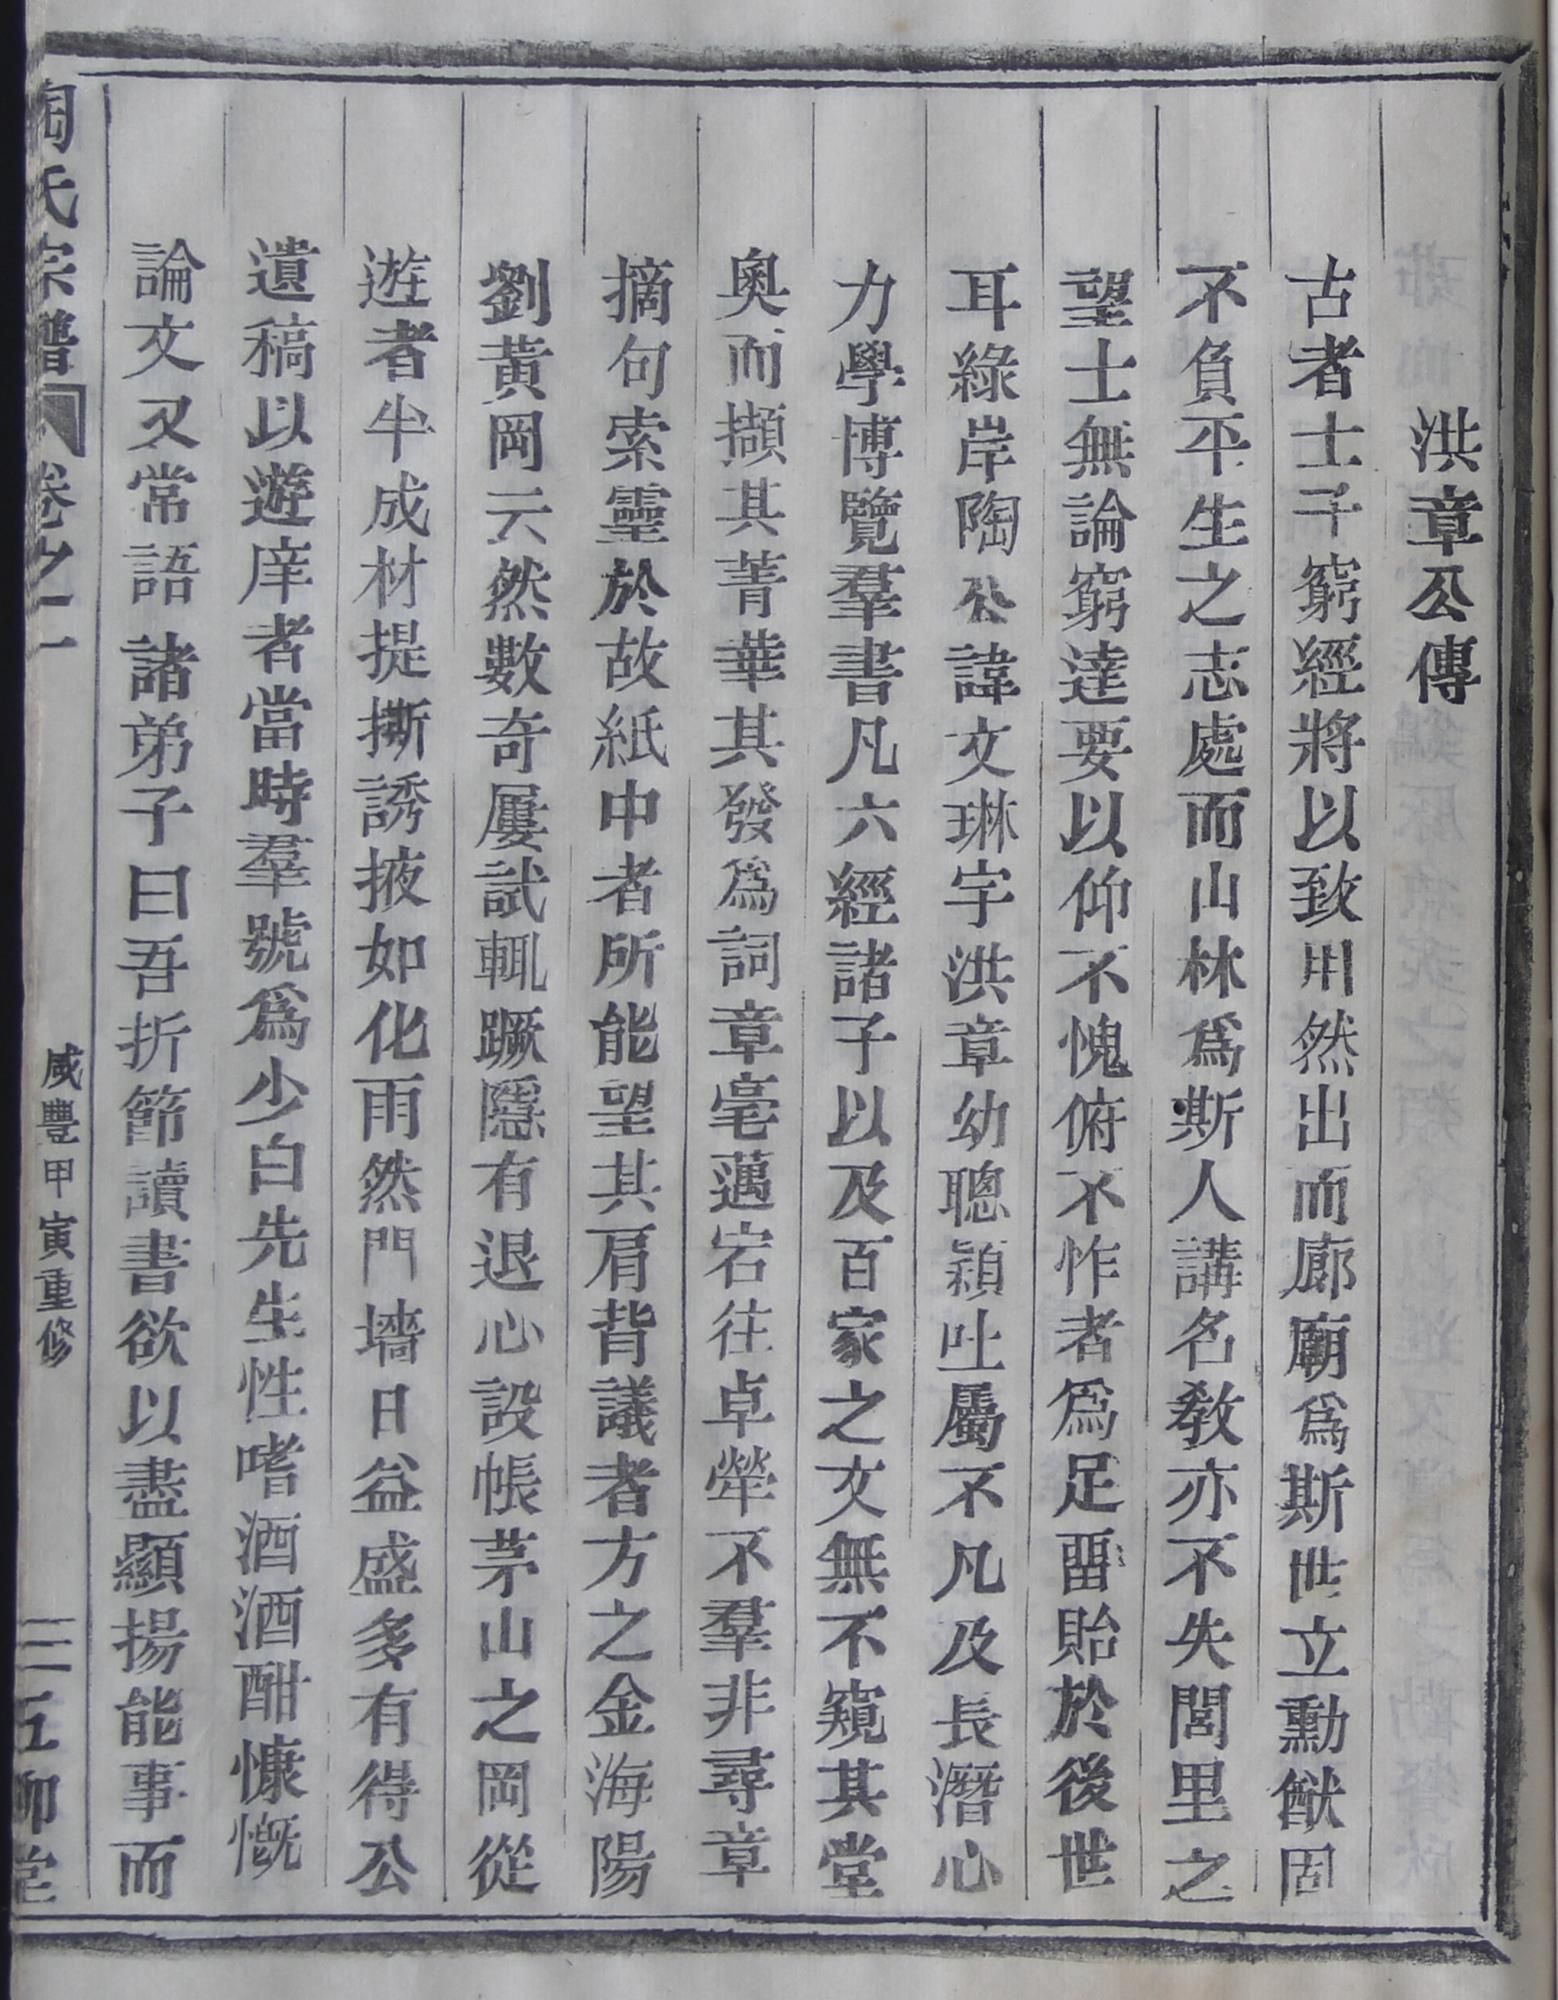 洪章公傳
古者士子窮經將以致用然出而廊廟爲斯世立勳猷固
不負平生之志處而山林爲斯人講名敎亦不失閭里之
望士無論窮達要以仰不愧俯不怍者爲足畱貽於後世
耳綠岸陶公諱文琳字洪章幼聰穎吐屬不凡及長潛心
力學博覽羣書凡六經諸子以及百家之文無不窺其堂
奧而擷其菁華其發爲詞章毫邁宕往卓犖不羣非尋章
摘句索靈於故紙中者所能望其肩背議者方之金海陽
劉黃岡云然數奇屢試輒蹶隱有退心設帳茅山之岡從
遊者半成材提撕誘掖如化雨然門墻日益盛多有得公
遺稿以遊庠者當時羣號爲少白先生性嗜酒酒酣慷慨
論文又常語諸弟子曰吾折節讀書欲以盡顯揚能事而
陶氏宗譜 卷之一 咸豐甲寅重修 三 五柳堂